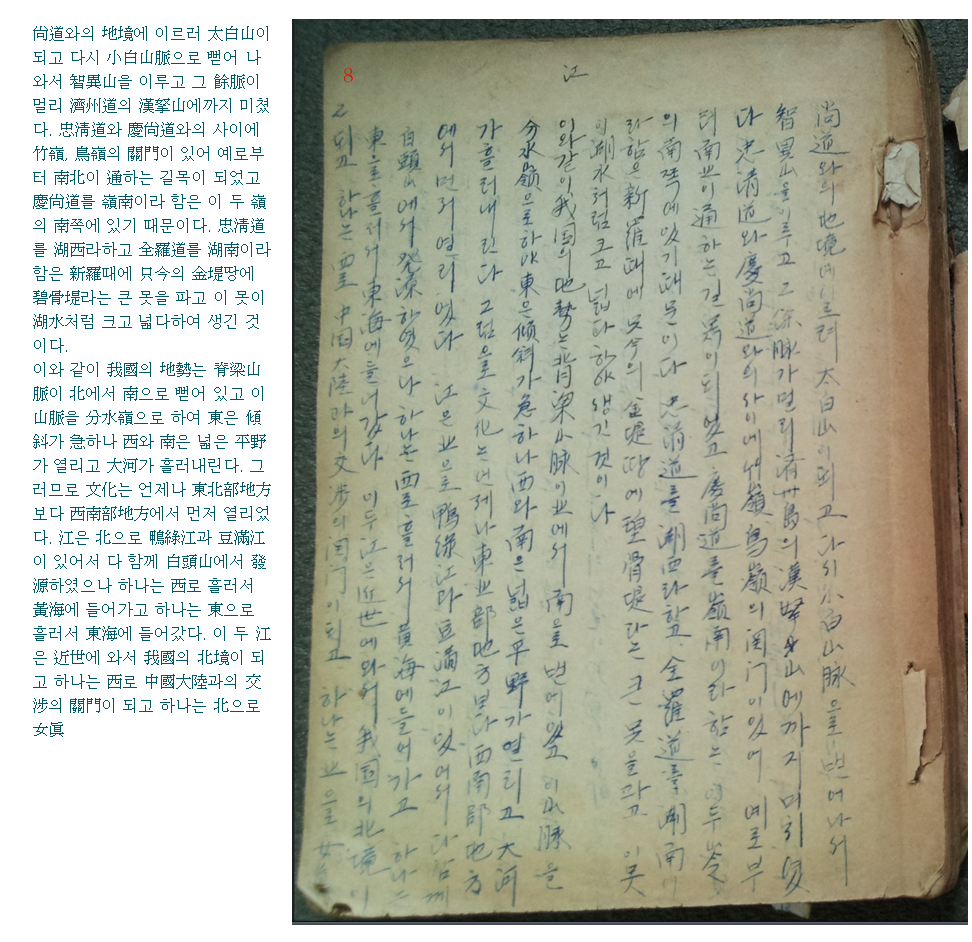 尙道와의 地境에 이르러 太白山이
되고 다시 小白山脈으로 뻗어 나
와서 智異山을 이루고 그 餘脈이
멀리 濟州道의 漢拏山에까지 미쳤
다. 忠淸道와 慶尙道와의 사이에
竹嶺, 鳥嶺의 關門이 있어 예로부
터 南北이 通하는 길목이 되었고
慶尙道를 嶺南이라 함은 이 두 嶺
의 南쪽에 있기 때문이다. 忠淸道
를 湖西라하고 全羅道를 湖南이라
함은 新羅때에 只今의 金堤땅에
碧骨堤라는 큰 못을 파고 이 못이
湖水처럼 크고 넓다하여 생긴 것
이다.
이와 같이 我國의 地勢는 脊梁山
脈이 北에서 南으로 뻗어 있고 이
山脈을 分水嶺으로 하여 東은 傾
斜가 急하나 西와 南은 넓은 平野
가 열리고 大河가 흘러내린다. 그
러므로 文化는 언제나 東北部地方
보다 西南部地方에서 먼저 열리었
다. 江은 北으로 鴨綠江과 豆滿江
이 있어서 다 함께 白頭山에서 發
源하였으나 하나는 西로 흘러서
黃海에 들어가고 하나는 東으로
흘러서 東海에 들어갔다. 이 두 江
은 近世에 와서 我國의 北境이 되
고 하나는 西로 中國大陸과의 交
涉의 關門이 되고 하나는 北으로
女眞
8
江
尙道와의 地境에 이르러 太白山이 되고 다시 小白山脈으로 뻗어 나서
智異山을 이루고 그 餘脈가 멀리 濟州島의 漢拏山에까지 미치였
다 忠淸道와 慶尙道와의 사이에 竹嶺 鳥嶺의 関门이 있어 예로부
터 南北이 通하는 길목이 되였고 慶尙道를 嶺南이라 함는 이 두 岺
의 南쪽에 있기 때문이다 忠淸道를 湖西라 하고 全羅道를 湖南이
라 함은 新羅때에 只今의 金堤땅에 碧骨堤라는 큰 못을 파고 이 못
이 湖水처럼 크고 넓다 하야 생긴 것이다
이와 같이 我国의 地勢는 背梁山脈이 北에서 南으로 뻗어 있고 이 山脈을
分水嶺으로 하야 東은 傾斜가 急하나 西와 南은 넓은 平野가 열리고 大河
가 흘러내린다 그럼으로 文化는 언제나 東北部地方보다 西南部地方
에서 먼저 열리였다 江은 北으로 鴨綠江과 豆滿江이 있어서 다 함께
白頭山에서 発源하였으나 하나는 西로 흘러서 黃海에 들어가고 하나는
東으로 흘러서 東海에 들어갔다 이 두 江은 近世에 와서 我国의 北境이
되고 하나는 西로 中国大陸과의 交涉의 関门이 되고 하나는 北으로 女
2